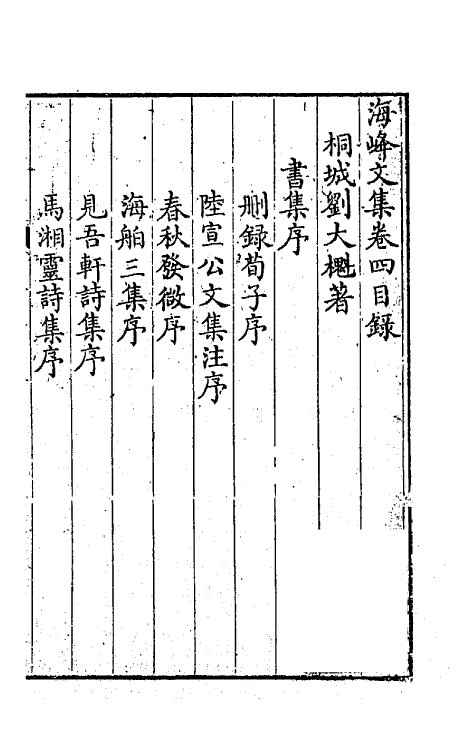 海峰文集卷四目錄
桐城劉大櫆著
書集序
刪錄荀子序
陸宣公文集注序
春秋發微序
海舶三集序
見吾軒詩集序
馬湘靈詩集序